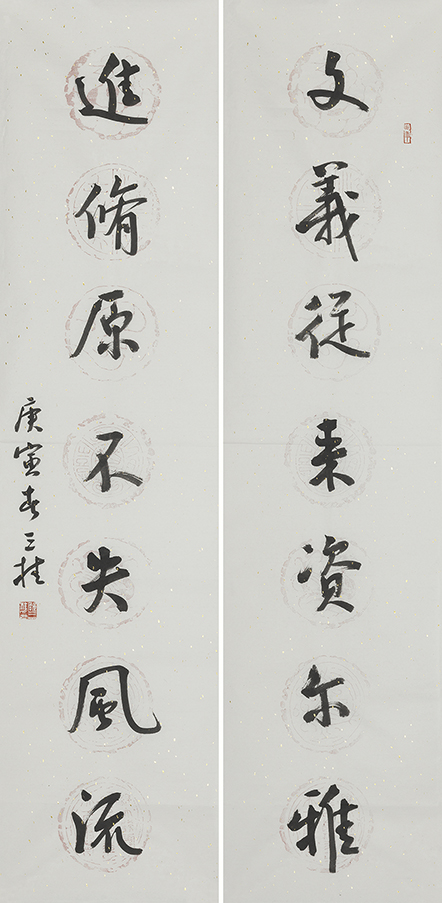 文義從来资尔雅
進脩原不失風流
庚寅春三桂